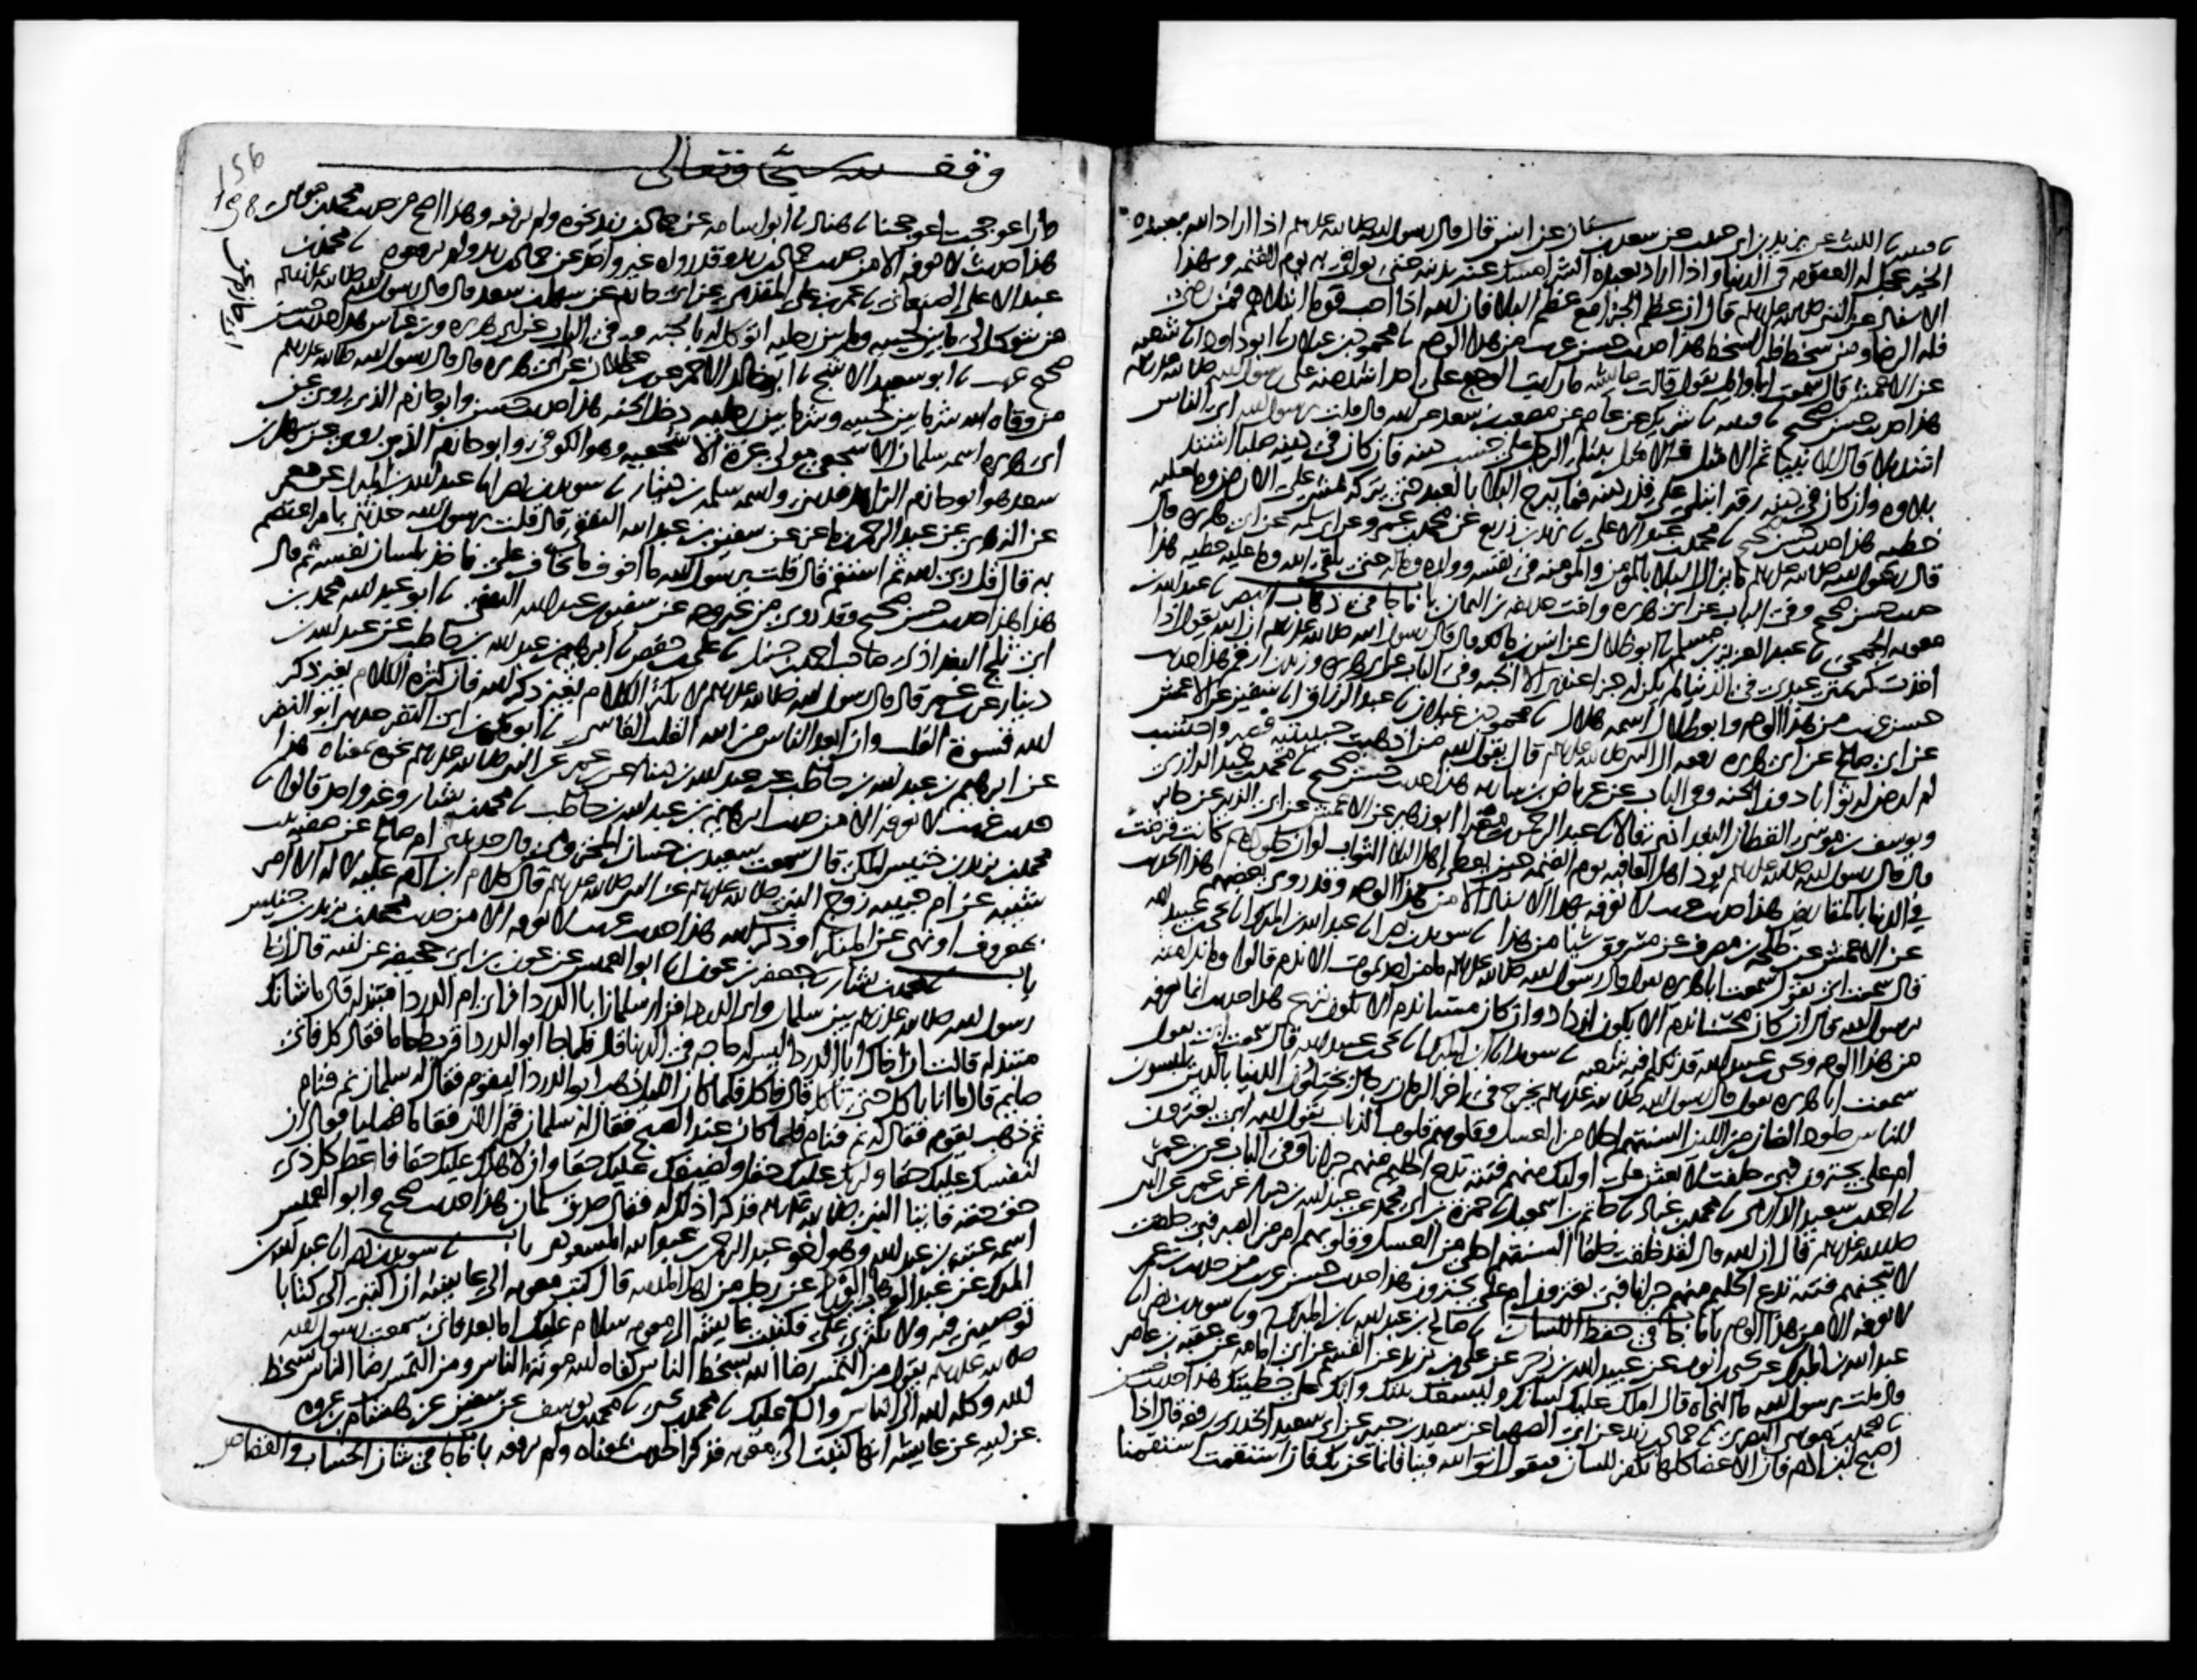 نا قتيبة نا الليث عن يزيد بن ابي حبيب عن سعد بن سنان عن انس قال قال رسول الله صلى الله عليه وسلم اذا اراد الله بعبده
الخير عجل له العقوبة في الدنيا واذا اراد بعبده الشر امسك عنه بذنبه حتى يوافي به يوم القيمة وبهذا
الاسناد عن النبي صلى الله عليه وسلم قال ان عظم الجزا مع عظم البلا فان الله اذا احب قوما ابتلاهم فمن رضي
فله الرضا ومن سخط فله السخط هذا حديث حسن غريب من هذا الوجه نا محمود بن غيلان نا ابو داود انا شعبة
عن الاعمش قال سمعت ابا وايل يقول قالت عايشة ما رايت الوجع على احد اشد منه على رسول الله صلى الله عليه وسلم
هذا حديث حسن صحيح نا قتيبة نا شريك عن عاصم عن مصعب بن سعد عن ابيه قال قلت يرسول الله اي الناس
اشد بلا قال الانبيا ثم الامثل فالامثل يبتلى الرجل على حسب دينه فان كان في دينه صلبا اشتد
بلاوه وان كان في دينه رقة ابتلي على قدر دينه فما يبرح البلا بالعبد حتى يتركه يمشي على الارض وما عليه
خطية هذا حديث حسن صحيح نا محمد بن عبد الاعلى نا يزيد بن زريع عن محمد بن عمرو عن ابي سلمة عن ابي هريرة قال
قال رسول الله صلى الله عليه وسلم ما يزال البلا بالمومن والمومنة في نفسه وولده وماله حتى يلقى الله وما عليه خطية هذا
حديث حسن صحيح وفي الباب عن ابي هريرة واخت حذيفة بن اليمان باب ما جا في ذهاب البصر نا عبد الله بن
معوية الجمحي نا عبد العزيز بن مسلم نا ابو ظلال عن انس بن مالك قال قال رسول الله صلى الله عليه وسلم ان الله يقول اذا
اخذت كريمتي عبدي في الدنيا لم يكن له جزا عندي الا الجنة وفي الباب عن ابي هريرة وزيد بن ارقم هذا حديث
حسن غريب من هذا الوجه وابو ظلال اسمه هلال نا محمود بن غيلان نا عبد الرزاق انا سفين عن الاعمش
عن ابي صالح عن ابي هريرة رفعه الى النبي صلى الله عليه وسلم قال يقول الله من اذهبت حبيبتيه فصبر واحتسب
لم ارض له ثوابا دون الجنة وفي الباب عن عرباض بن سارية هذا حديث حسن صحيح نا محمد بن حميد الرازي
ويوسف بن موسى القطان البغدادي قالا نا عبد الرحمن بن مغرا ابو زهير عن الاعمش عن ابي الزبير عن جابر
قال قال رسول الله صلى الله عليه وسلم يود اهل العافية يوم القيمة حين يعطى اهل البلا الثواب لو ان جلودهم كانت قرضت
في الدنيا بالمقاريض هذا حديث غريب لا نعرفه بهذا الاسناد الا من هذا الوجه وقد روى بعضهم هذا الحديث
عن الاعمش عن طلحة بن مصرف عن مسروق شيا من هذا نا سويد بن نصر انا عبد الله بن المبارك انا يحيى بن عبيد الله
قال سمعت ابي يقول سمعت ابا هريرة يقول قال رسول الله صلى الله عليه وسلم ما من احد يموت الا ندم قالوا وما ندامته
يرسول الله قال ان كان محسنا ندم الا يكون ازداد وان كان مسيا ندم الا يكون نزع هذا حديث انما نعرفه
من هذا الوجه ويحيى بن عبيد الله قد تكلم فيه شعبة نا سويد انا ابن المبارك نا يحيى بن عبيد الله قال سمعت ابي يقول
سمعت ابا هريرة يقول قال رسول الله صلى الله عليه وسلم يخرج في اخر الزمان رجال يختلون الدنيا بالدين يلبسون
للناس جلود الضان من اللين السنتهم احلى من العسل وقلوبهم قلوب الذياب يقول الله ابي يغترون
ام علي يجترون فبي حلفت لابعثن على اوليك منهم فتنة تدع الحليم منهم حيرانا وفي الباب عن ابن عمر
نا احمد بن سعيد الدارمي نا محمد بن عباد نا حاتم بن اسمعيل نا حمزة بن ابي محمد عن عبد الله بن دينار عن ابن عمر عن النبي
صلى الله عليه وسلم قال ان الله قال لقد خلقت خلقا السنتهم احلى من العسل وقلوبهم امر من الصبر فبي حلفت
لاتيحنهم فتنة تدع الحليم منهم حيرانا فبي يغترون ام علي يجترون هذا حديث حسن غريب من حديث ابن عمر
لا نعرفه الا من هذا الوجه باب ما جا في حفظ اللسان نا صالح بن عبد الله نا ابن المبارك ونا سويد بن نصر انا
عبد الله بن المبارك عن يحيى بن ايوب عن عبيد الله بن زحر عن علي بن يزيد عن القسم عن ابي امامة عن عقبة بن عامر
قال قلت يرسول الله ما النجاة قال املك عليك لسانك وليسعك بيتك وابك على خطيتك هذا حديث حسن
نا محمد بن موسى البصري نا حماد بن زيد عن ابي الصهبا عن سعيد بن جبير عن ابي سعيد الخدري رفعه قال اذا
اصبح ابن ادم فان الاعضا كلها تكفر اللسان فتقول اتق الله فينا فانما نحن بك فان استقمت استقمنا
وقف لله سبحانه وتعالى
156
198
وان اعوججت اعوججنا نا هناد نا ابو اسامة عن حماد بن زيد نحوه ولم يرفعه وهذا اصح من حديث محمد بن موسى
هذا حديث لا نعرفه الا من حديث حماد بن زيد وقد رواه غير واحد عن حماد بن زيد ولم يرفعوه نا محمد بن
عبد الاعلى الصنعاني نا عمر بن علي المقدمي عن ابي حازم عن سهل بن سعد قال قال رسول الله صلى الله عليه وسلم
من يتوكل لي ما بين لحييه وما بين رجليه اتوكل له بالجنة وفي الباب عن ابي هريرة وابن عباس هذا حديث حسن
صحيح غريب نا ابو سعيد الاشج نا ابو خالد الاحمر عن ابن عجلان عن ابي حازم عن ابي هريرة قال قال رسول الله صلى الله عليه وسلم
من وقاه الله شر ما بين لحييه وشر ما بين رجليه دخل الجنة هذا حديث حسن وابو حازم الذي روى عن
ابي هريرة اسمه سلمان الاشجعي مولى عزة الاشجعية وهو الكوفي وابو حازم الذي روى عن سهل بن
سعد هو ابو حازم الزاهد مديني واسمه سلمة بن دينار نا سويد بن نصر انا عبد الله بن المبارك عن معمر
عن الزهري عن عبد الرحمن بن ماعز عن سفين بن عبد الله الثقفي قال قلت يرسول الله حدثني بامر اعتصم
به قال قل ربي الله ثم استقم قال قلت يرسول الله ما اخوف ما تخاف علي فاخذ بلسان نفسه ثم قال
هذا هذا حديث حسن صحيح وقد روي من غير وجه عن سفين بن عبد الله الثقفي نا ابو عبد الله محمد بن
ابي ثلج البغدادي صاحب احمد بن حنبل نا علي بن حفص نا ابرهيم بن عبد الله بن حاطب عن عبد الله بن
دينار عن ابن عمر قال قال رسول الله صلى الله عليه وسلم لا تكثر الكلام بغير ذكر الله فان كثرة الكلام بغير ذكر
الله قسوة القلب وان ابعد الناس من الله القلب القاسي نا ابو بكر بن ابي النضر حدثني ابو النضر
عن ابرهيم بن عبد الله بن حاطب عن عبد الله بن دينار عن ابن عمر عن النبي صلى الله عليه وسلم نحوه بمعناه هذا
حديث غريب لا نعرفه الا من حديث ابرهيم بن عبد الله بن حاطب نا محمد بن بشار وغير واحد قالوا نا
محمد بن يزيد بن خنيس المكي قال سمعت سعيد بن حسان المخزومي قال حدثتني ام صالح عن صفية بنت
شيبة عن ام حبيبة زوج النبي صلى الله عليه وسلم عن النبي صلى الله عليه وسلم قال كلام ابن ادم عليه لا له الا امر
بمعروف او نهي عن المنكر او ذكر الله هذا حديث غريب لا نعرفه الا من حديث محمد بن يزيد بن خنيس
باب نا محمد بن بشار نا جعفر بن عون نا ابو العميس عن عون بن ابي جحيفة عن ابيه قال اخا
رسول الله صلى الله عليه وسلم بين سلمان وابي الدردا فزار سلمان ابا الدردا فراى ام الدردا متبذلة قال ما شانك
متبذلة قالت ان اخاك ابا الدردا ليس له حاجة في الدنيا قال فلما جا ابو الدردا قرب طعاما فقال كل فاني
صايم قال ما انا باكل حتى تاكل قال فاكل فلما كان الليل ذهب ابو الدردا ليقوم فقال له سلمان نم فنام
ثم ذهب يقوم فقال له نم فنام فلما كان عند الصبح فقال له سلمان قم الان فقاما فصليا فقال ان
لنفسك عليك حقا ولربك عليك حقا ولضيفك عليك حقا وان لاهلك عليك حقا فاعط كل ذي
حق حقه فاتيا النبي صلى الله عليه وسلم فذكرا ذلك له فقال صدق سلمان هذا حديث صحيح وابو العميس
اسمه عتبة بن عبد الله وهو اخو عبد الرحمن بن عبد الله المسعودي باب نا سويد بن نصر انا عبد الله بن
المبارك عن عبد الوهاب بن الورد عن رجل من اهل المدينة قال كتب معوية الى عايشة ان اكتبي الي كتابا
توصيني فيه ولا تكثري علي فكتبت عايشة الى معوية سلام عليك اما بعد فاني سمعت رسول الله
صلى الله عليه وسلم يقول من التمس رضا الله بسخط الناس كفاه الله مونة الناس ومن التمس رضا الناس بسخط
الله وكله الله الى الناس والسلم عليك نا محمد بن يحيى نا محمد بن يوسف عن سفين عن هشام بن عروة
عن ابيه عن عايشة انها كتبت الى معوية فذكر الحديث بمعناه ولم يرفعه باب ما جا في شان الحساب والقصاص